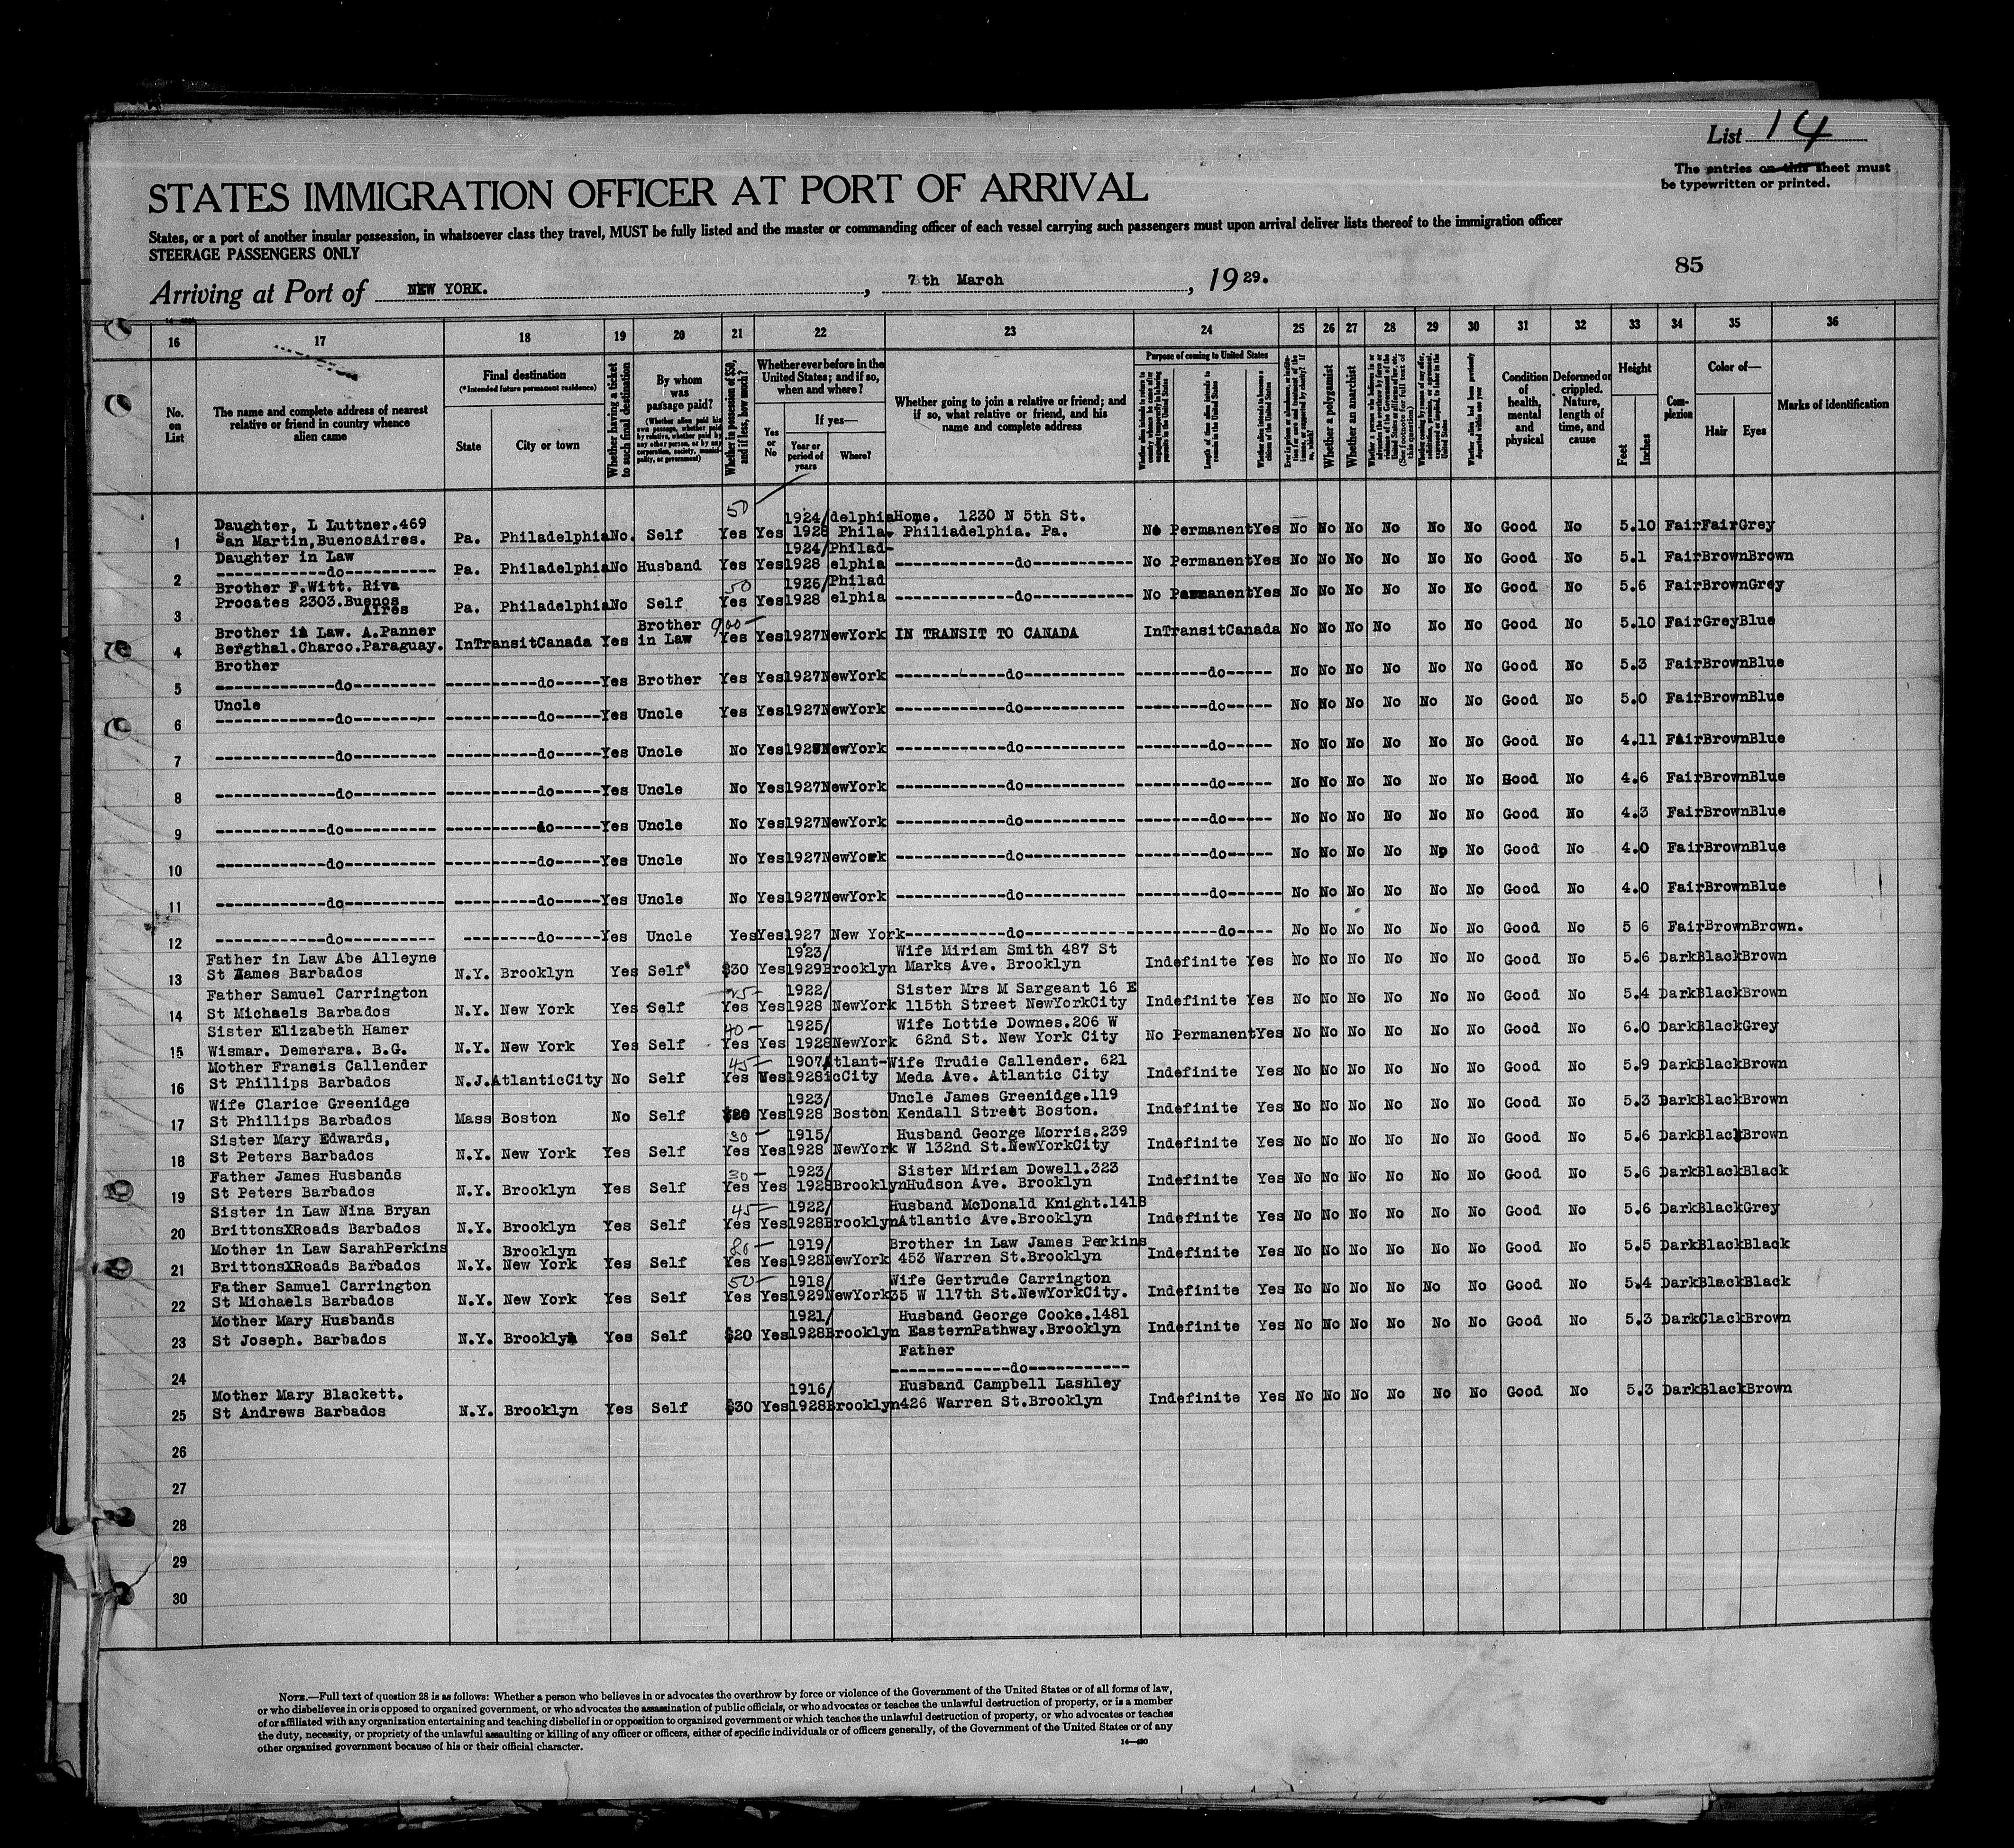 List 14
The entries on this sheet must
be typewritten or printed.
STATES IMMIGRATION OFFICER AT PORT OF ARRIVAL
States, or a port of another insular possession, in whatsoever class they travel, MUST be fully listed and the master or commanding officer of each vessel carrying such passengers must upon arrival deliver lists thereof to the immigration officer
STEERAGE PASSENGERS ONLY
85
Arriving at Port of NEW YORK. , 7th March , 1929.
16 17 18 19 20 21 22 23 24 25 26 27 28 29 30 31 32 33 34 35 36
No. on List
The name and complete address of nearest relative or friend in country whence alien came
Final destination
(*Intended future permanent residence)
State
City or town
Whether having a ticket to such final destination
By whom was passage paid?
(Whether alien paid his own passage, whether paid by relative, whether paid by any other person, or by any corporation, society, municipality, or government)
Whether in possession of $50, and if less, how much?
Whether ever before in the United States; and if so, when and where?
Yes or No
If yes—
Year or period of years
Where?
Whether going to join a relative or friend; and if so, what relative or friend, and his name and complete address
Purpose of coming to United States
Length of time alien intends to remain in the United States
Whether alien intends to become a citizen of the United States
Whether a polygamist
Whether an anarchist
Condition of health, mental and physical
Deformed or crippled. Nature, length of time, and cause
Height
Feet
Inches
Complexion
Color of—
Hair
Eyes
Marks of identification
50
Daughter, L Luttner.469 1924/delphia Home. 1230 N 5th St.
1 San Martin,BuenosAires. Pa. Philadelphia No. Self Yes Yes 1928 Phila- Philiadelphia. Pa. No Permanent Yes No No No No No No Good No 5.10 Fair Fair Grey
Daughter in Law 1924/Philad-
2 ------------do---------- Pa. Philadelphia No Husband Yes Yes 1928 elphia -------------do----------- No Permanent Yes No No No No No No Good No 5.1 Fair Brown Brown
Brother F.Witt. Riva 50 1926/Philad
3 Procates 2303.Buenos Aires Pa. Philadelphia No Self Yes Yes 1928 elphia -------------do----------- No Permanent Yes No No No No No No Good No 5.6 Fair Brown Grey
Brother in Law. A.Panner Brother 900-
4 Bergthal.Charco.Paraguay. InTransitCanada Yes in Law Yes Yes 1927 NewYork IN TRANSIT TO CANADA InTransitCanada No No No No No No Good No 5.10 Fair Grey Blue
Brother
5 -------------do--------- ----------do-----Yes Brother Yes Yes 1927 NewYork ------------do----------- --------do----- No No No No No No Good No 5.3 Fair Brown Blue
Uncle
6 -------------do--------- ----------do-----Yes Uncle Yes Yes 1927 NewYork ------------do----------- --------do----- No No No No No No Good No 5.0 Fair Brown Blue
7 -------------do--------- ----------do-----Yes Uncle No Yes 1927 NewYork ------------do----------- --------do----- No No No No No No Good No 4.11 Fair Brown Blue
8 -------------do--------- ----------do-----Yes Uncle No Yes 1927 NewYork ------------do----------- --------do----- No No No No No No Good No 4.6 Fair Brown Blue
9 -------------do--------- ----------do-----Yes Uncle No Yes 1927 NewYork ------------do----------- --------do----- No No No No No No Good No 4.3 Fair Brown Blue
10 ------------do---------- ----------do-----Yes Uncle No Yes 1927 NewYork ------------do----------- --------do----- No No No No No No Good No 4.0 Fair Brown Blue
11 ------------do----------- ---------do-----Yes Uncle No Yes 1927 NewYork ------------do----------- --------do------ No No No No No No Good No 4.0 Fair Brown Blue
12 ------------do---------- --------do-----Yes Uncle Yes Yes 1927 New York------------do------------ ---------do---- No No No No No No Good No 5 6 Fair Brown Brown.
Father in Law Abe Alleyne 1923/ Wife Miriam Smith 487 St
13 St James Barbados N.Y. Brooklyn Yes Self $30 Yes 1929 Brooklyn Marks Ave. Brooklyn Indefinite Yes No No No No No No Good No 5.6 Dark Black Brown
Father Samuel Carrington 1922/ Sister Mrs M Sargeant 16 E
14 St Michaels Barbados N.Y. New York Yes Self Yes Yes 1928 NewYork 115th Street NewYorkCity Indefinite Yes No No No No No No Good No 5.4 Dark Black Brown
Sister Elizabeth Hamer 40- 1925/ Wife Lottie Downes.206 W
15 Wismar. Demerara. B.G. N.Y. New York Yes Self Yes Yes 1928 NewYork 62nd St. New York City No Permanent Yes No No No No No No Good No 6.0 Dark Black Grey
Mother Francis Callender 45- 1907 Atlant- Wife Trudie Callender. 621
16 St Phillips Barbados N.J. AtlanticCity No Self Yes Yes 1928 icCity Meda Ave. Atlantic City Indefinite Yes No No No No No No Good No 5.9 Dark Black Brown
Wife Clarice Greenidge 1923/ Uncle James Greenidge.119
17 St Phillips Barbados Mass Boston No Self Yes 1928 Boston Kendall Street Boston. Indefinite Yes No No No No No No Good No 5.3 Dark Black Brown
Sister Mary Edwards, 30- 1915/ Husband George Morris.239
18 St Peters Barbados N.Y. New York Yes Self Yes Yes 1928 NewYork W 132nd St.NewYorkCity Indefinite Yes No No No No No No Good No 5.6 Dark Black Brown
Father James Husbands 30- 1923/ Sister Miriam Dowell.323
19 St Peters Barbados N.Y. Brooklyn Yes Self Yes Yes 1928 Brooklyn Hudson Ave. Brooklyn Indefinite Yes No No No No No No Good No 5.6 Dark Black Black
Sister in Law Nina Bryan 45- 1922/ Husband McDonald Knight.1418
20 BrittonsXRoads Barbados N.Y. Brooklyn Yes Self Yes Yes 1928 Brooklyn Atlantic Ave.Brooklyn Indefinite Yes No No No No No No Good No 5.6 Dark Black Grey
Mother in Law SarahPerkins Brooklyn 80- 1919/ Brother in Law James Perkins
21 BrittonsXRoads Barbados N.Y. New York Yes Self Yes Yes 1928 NewYork 453 Warren St.Brooklyn Indefinite Yes No No No No No No Good No 5.5 Dark Black Black
Father Samuel Carrington 50- 1918/ Wife Gertrude Carrington
22 St Michaels Barbados N.Y. New York Yes Self Yes Yes 1929 NewYork 35 W 117th St.NewYorkCity. Indefinite Yes No No No No No No Good No 5.4 Dark Black Black
Mother Mary Husbands 1921/ Husband George Cooke.1481
23 St Joseph. Barbados N.Y. Brooklyn Yes Self $20 Yes 1928 Brooklyn EasternPathway.Brooklyn Indefinite Yes No No No No No No Good No 5.3 Dark Clack Brown
Father
24 -------------do-----------
Mother Mary Blackett. 1916/ Husband Campbell Lashley
25 St Andrews Barbados N.Y. Brooklyn Yes Self $30 Yes 1928 Brooklyn 426 Warren St.Brooklyn Indefinite Yes No No No No No No Good No 5.3 Dark Black Brown
26
27
28
29
30
NOTE.—Full text of question 28 is as follows: Whether a person who believes in or advocates the overthrow by force or violence of the Government of the United States or of all forms of law,
or who disbelieves in or is opposed to organized government, or who advocates the assassination of public officials, or who advocates or teaches the unlawful destruction of property, or is a member
of or affiliated with any organization entertaining and teaching disbelief in or opposition to organized government or which teaches the unlawful destruction of property, or who advocates or teaches
the duty, necessity, or propriety of the unlawful assaulting or killing of any officer or officers, either of specific individuals or of officers generally, of the Government of the United States or of any
other organized government because of his or their official character.
14—430